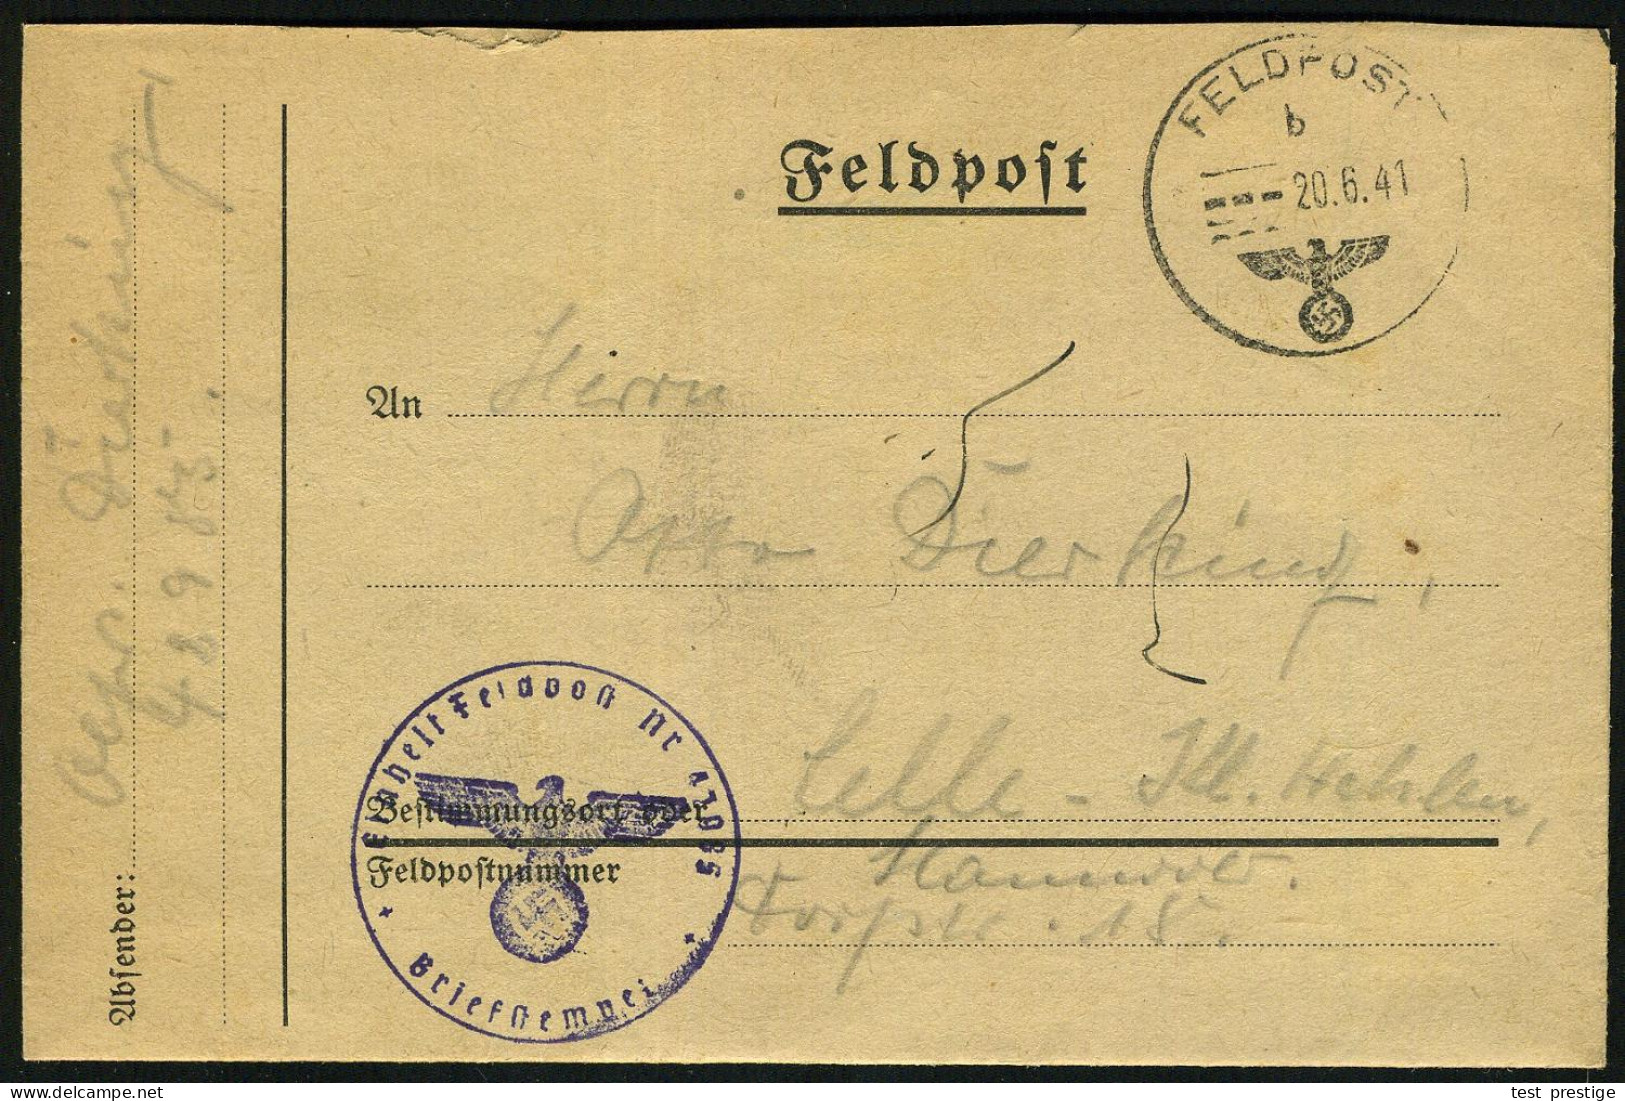 Feldpost
FELDPOST
b
20.6.41
An Herrn
Otto Dierking,
Celle - Kl. Hehlen,
Bestimmungsort oder
Hannover.
Feldpostnummer
Dorfstr. 18.
Einheit Feldpost Nr
Briefstempel
Absender: Gefr. Dierking
delcampe.net
test_prestige